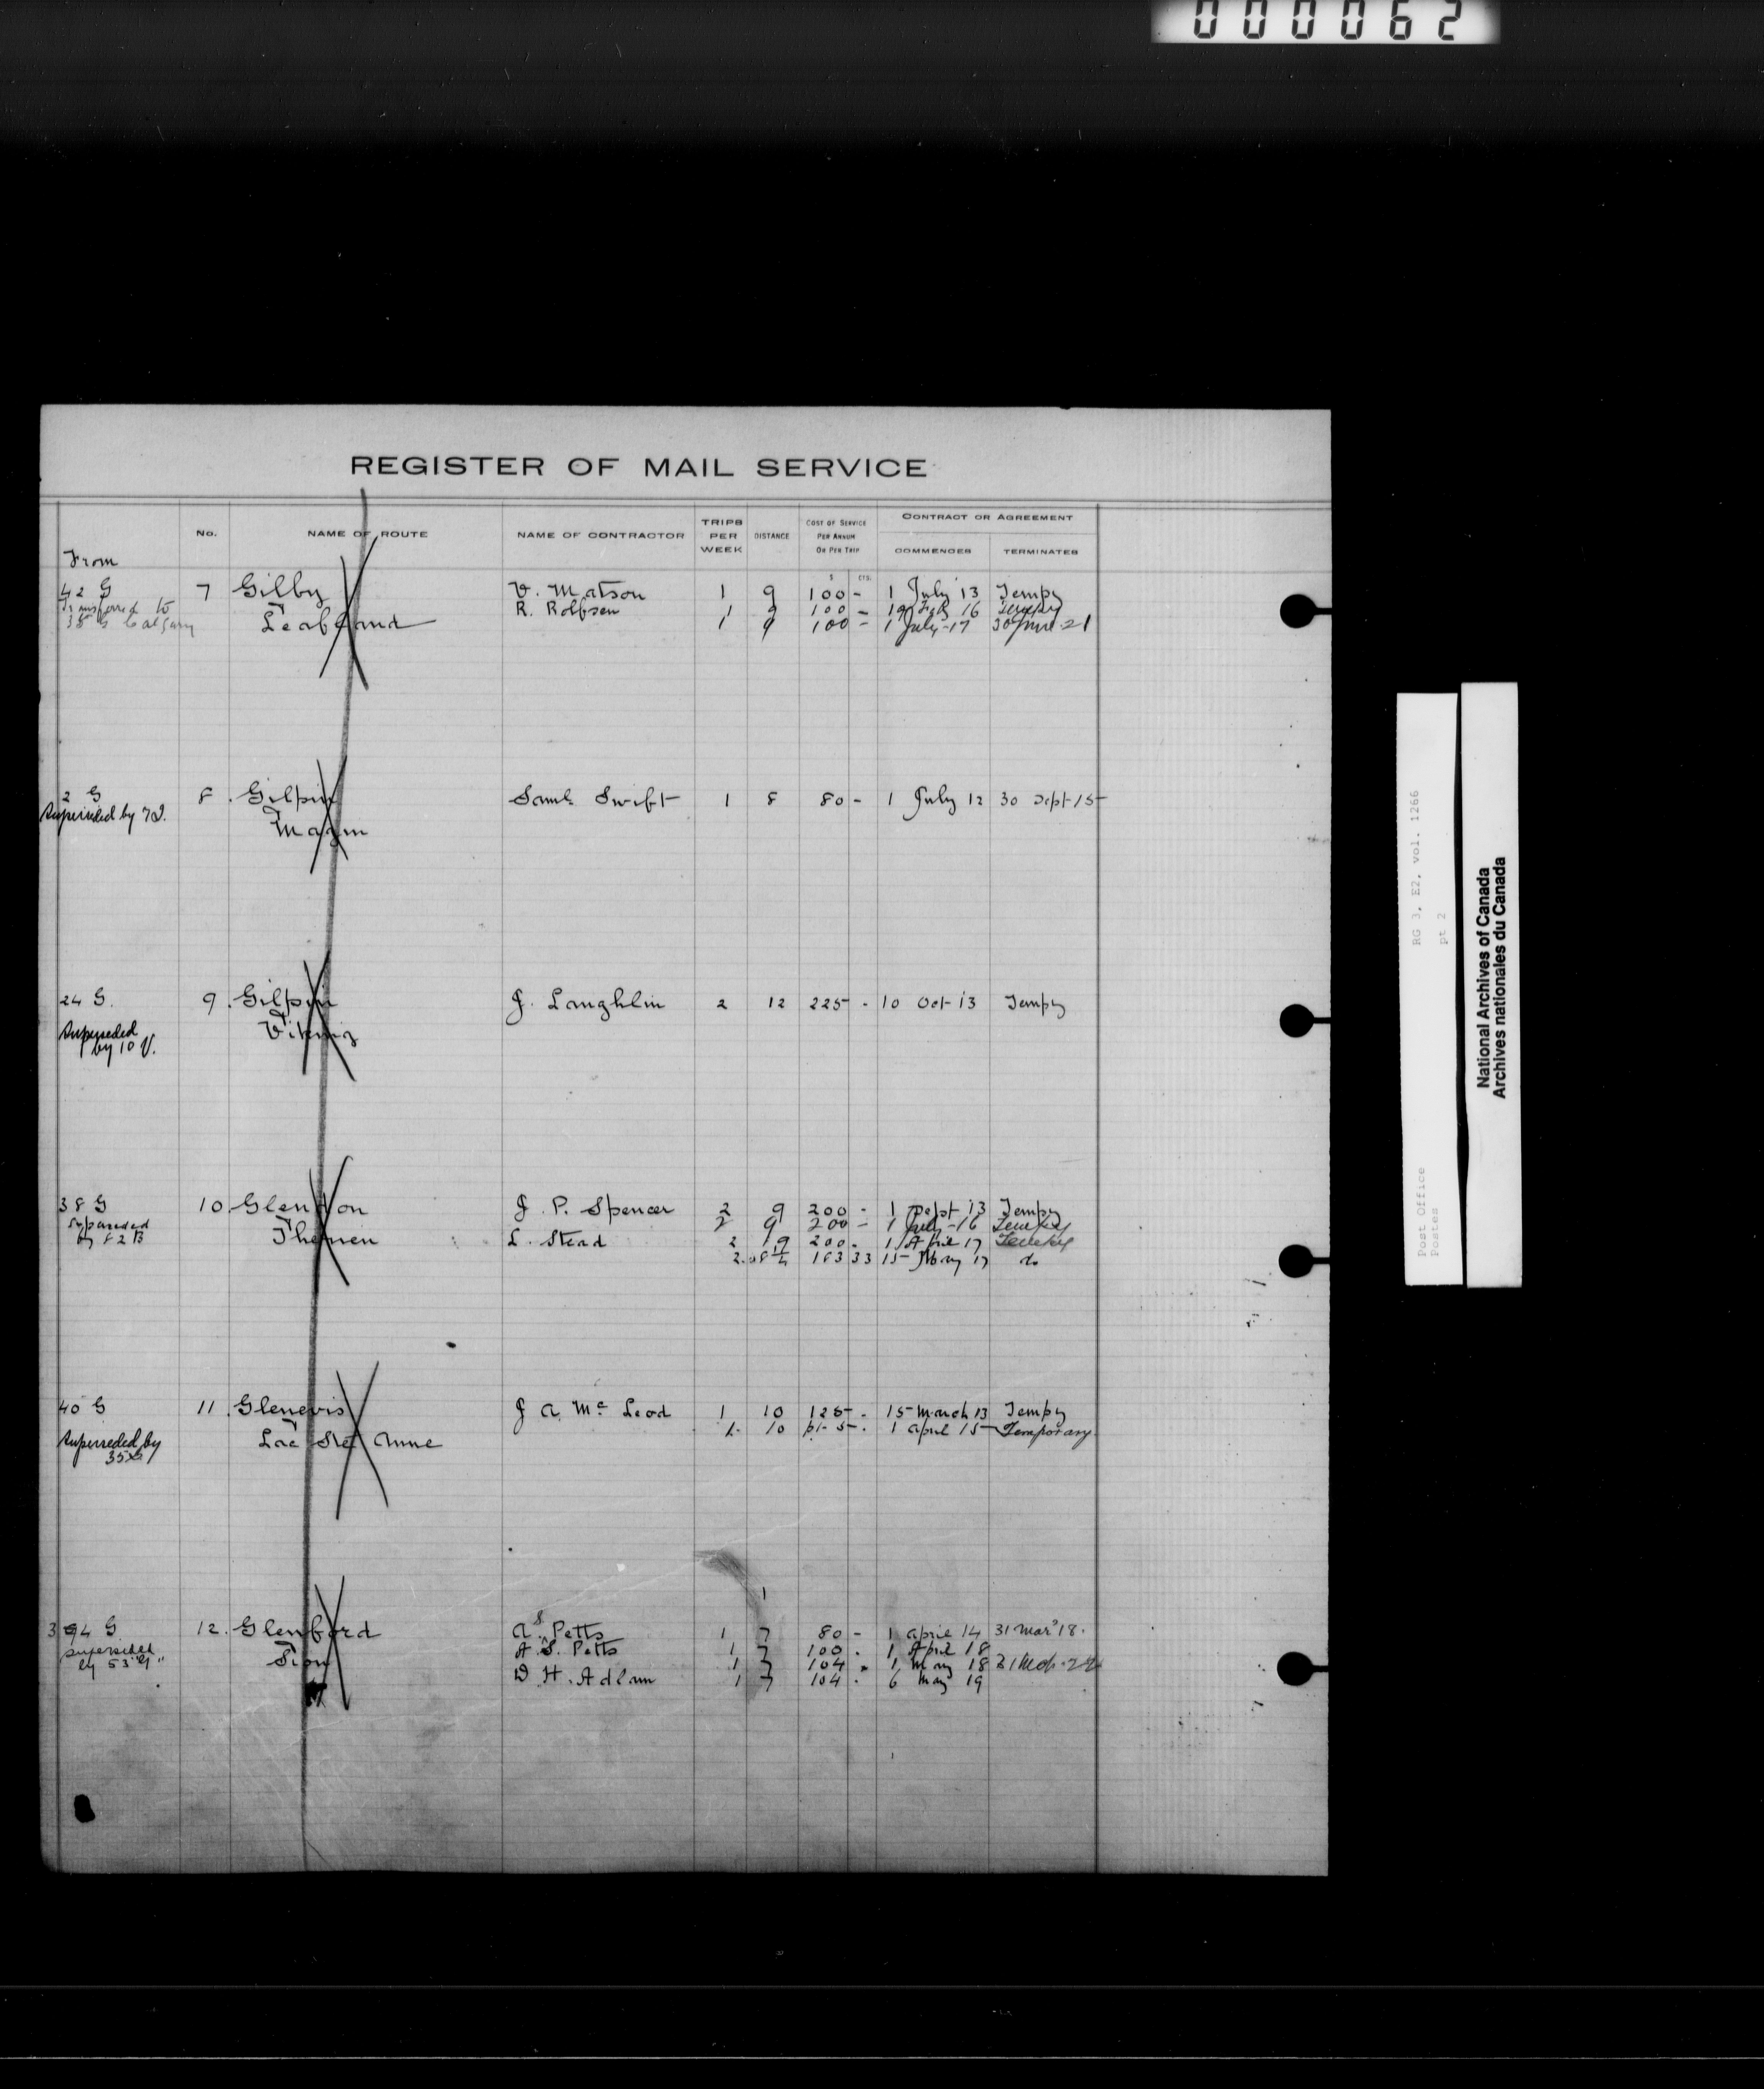 000062
REGISTER OF MAIL SERVICE
From
No.
NAME OF ROUTE
NAME OF CONTRACTOR
TRIPS PER WEEK
DISTANCE
COST OF SERVICE PER ANNUM OR PER TRIP
CONTRACT OR AGREEMENT
COMMENCES
TERMINATES
$ CTS.
42 G 7 Gilby V. Matson 1 9 100 - 1 July '13 Tempy
Transferred to R. Rolfsen 1 9 100 - 19 Feb 16 Tempy
38 G Calgary Leafland 1 9 100 - 1 July-17 30 June-21
2 G 8. Gilpin Saml. Swift 1 8 80 - 1 July 12 30 Sept 15
Superseded by
24 G. 9. Gilpin J. Laughlin 2 12 225 - 10 Oct 13 Tempy
Superseded
by 10 V.
38 G 10 J. P. Spencer 2 9 200 - 1 Sept 13 Tempy
Superseded 2 9 200 - 1 July-16 Tempy
by 82 B Therien L. Stead 2 9 200. 1 April 17 Tempy
183 33 15 May 17 do
40 G 11. Glenevis J A. Mc Leod 1 10 125 - 15 March 13 Tempy
1. 10 5 - 1 April 15 Temporary.
Superseded by Lac Ste Anne
94 G 12. Glenford A. S. Petts 1 7 80 - 1 April 14 31 Mar '18.
superseded A. S. Petts 1 7 100. 1 April 18
by 53 Sion 1 7 104. 1 May 18 31 Mch-22
D. H. Adlam 1 7 104. 6 May 19
Post Office RG 3, E2, vol. 1266
Postes pt 2
National Archives of Canada
Archives nationales du Canada